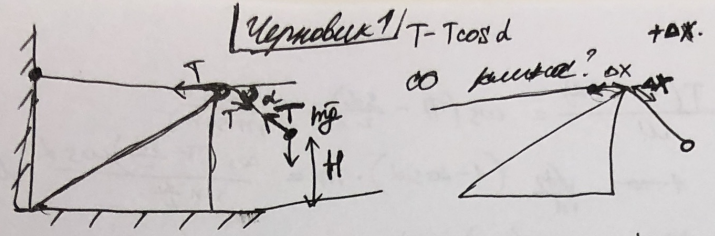 Черновик 1 T-Tcosα +Δx.
CO клина?
T
T
α
T
mg
H
Δx
Δx